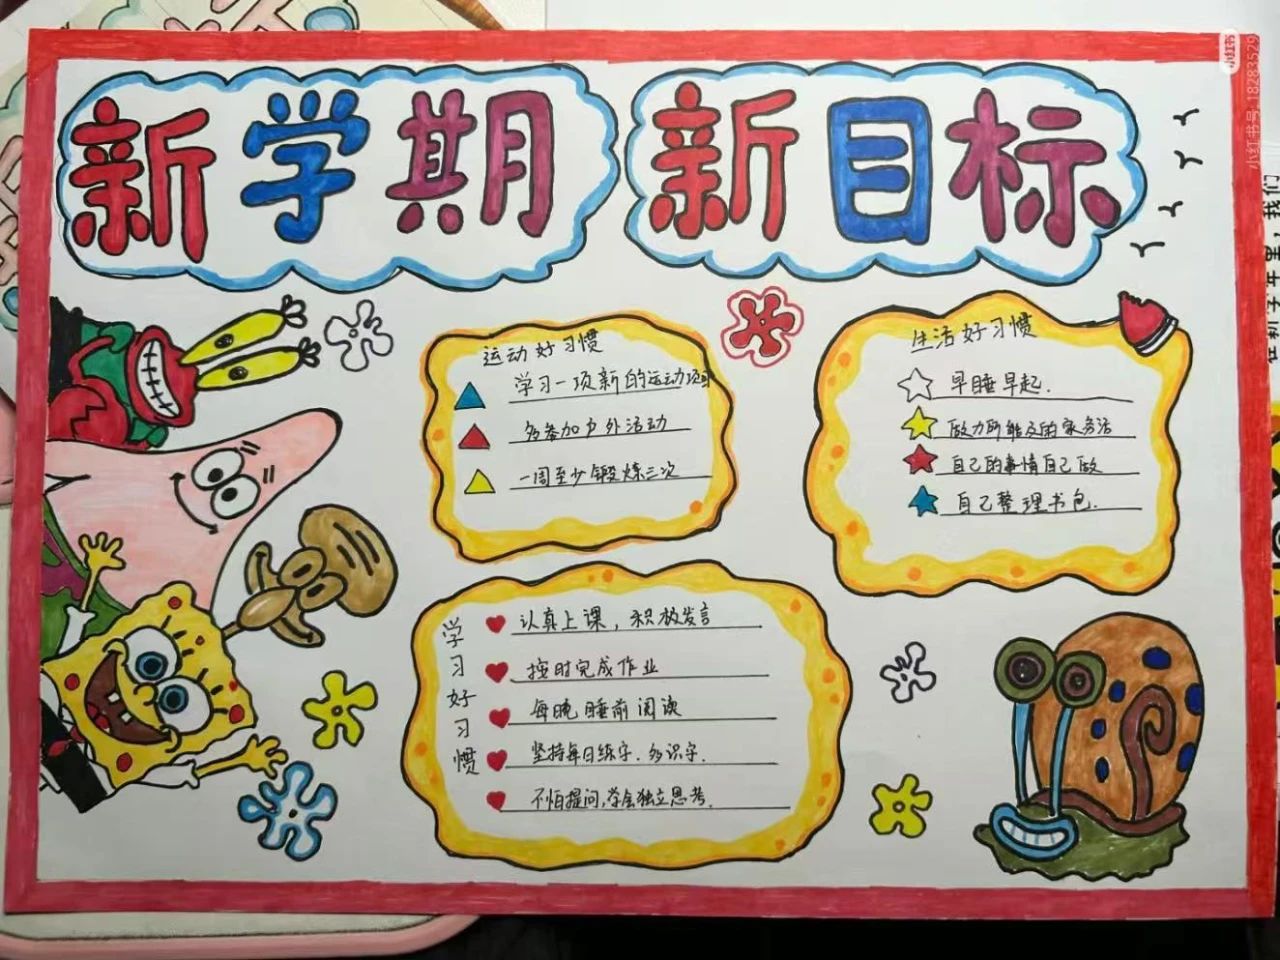 新学期 新目标
运动好习惯
学习一项新的运动项目
多参加户外活动
一周至少锻炼三次
生活好习惯
早睡早起.
做力所能及的家务活
自己的事情自己做
自己整理书包.
学习好习惯
认真上课，积极发言
按时完成作业
每晚睡前阅读
坚持每日练字.多识字.
不怕提问,学会独立思考.
小红书
小红书号:18283529
在新学年里，我们